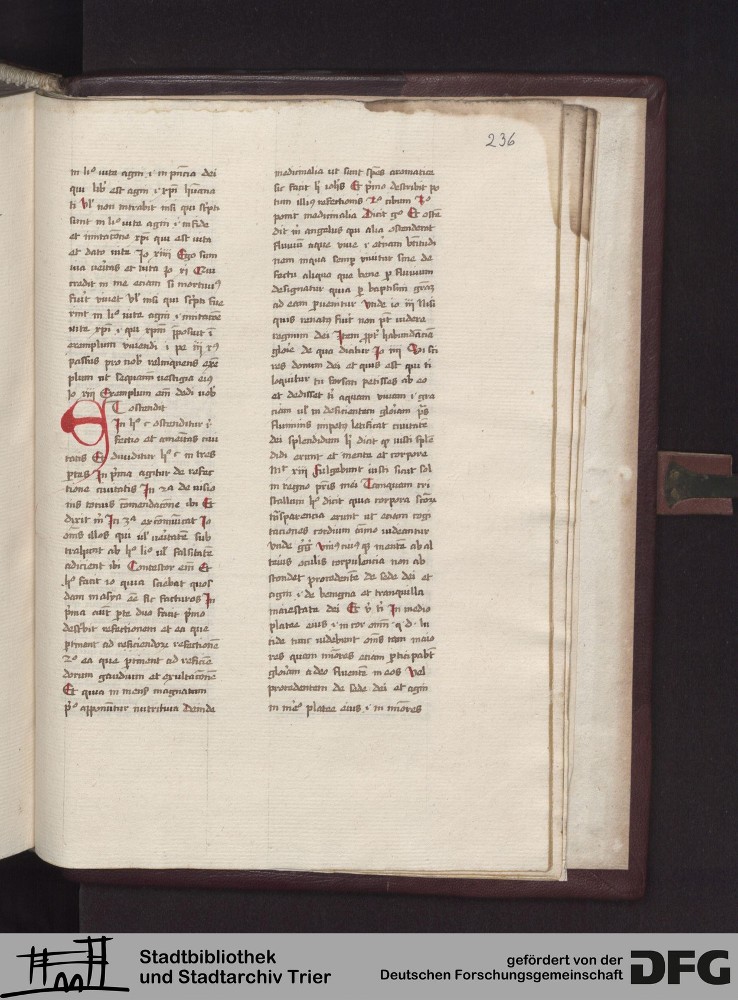 236
in li⁰ vite agni .i. in pñcia dei
qui lib̾ est agni .i. xp̃i hũana
ti Vl̾ non intrabit nisi qui sc̾pti
sunt in li⁰ vite agni .i. in fide
et imitac̃one xp̃i qui est vita
et dator vite Jo xiiii Ego sum
via v̾itas et vita Jo xi Qui
credit in me etiam si mortuus
fuit vivet vl̾ nisi qui sc̾pti fue
rint in li⁰ vite agni .i. imitac̃one
vite xp̃i .i. qui xp̃m
exemplum vivendi .i. pe iiii xp̃s
passus pro nob̾ relinquens exe
plum ut sequamĩ vestigia eiꝰ
Jo xiii Exemplum em̃ dedi vob̾
ET ostendit
In h⁰ c⁰ ostenditur
fectio et amenitas civi
tatis Et dividitur h⁰ c⁰ in tres
ꝑtes In pĩma agitur de refec
tione civitatis In 2a de visio
nis totius com̃endac̃one ibi Et
dixit m̃ In 3a excõm̃icat Jo
om̃s illos qui vl̾ v̾itatem sub
trahunt ab h⁰ li⁰ vl̾ falsitatẽ
adicient ibi Contestor em̃ Et
h⁰ facit Jo quia sciebat quos
dam ee sic facturos In
pĩma aũt ꝑte duo facit pĩmo
describit refectionem et ea que
ꝑtinent ad reficiendoꝝ refectionẽ
2⁰ ea que ꝑtinent ad reficiẽ
dorum gaudium et exultac̃onẽ
Et quia in mens magnatum
p̾⁰ apponuntur nutritiva Deinde
medicinalia ut sunt sp̃es aromatice
sic facit h̾ ioh̾is Et pĩmo describit po
tum illiꝰ refectionis 2⁰ cibum 3⁰
ponit medicinalia Dicit g⁰ Et oste
dit m̃ angelus qui alia ostenderat
fluviũ aque vive .i. et̾nam b̃titudi
nem in qua semꝑ vivitur sine de
fectu aliquo que bene ꝑ fluvium
designatur quia ꝑ baptismĩ gr̃az
ad eam ꝑvenitur Unde io iii Nisi
quis renatꝰ fuit non p̃t videre
regnum dei Item ꝓpt̾ habundãciã
glorie de qua dicitur Jo iiii Si sci
res donum dei et quis est qui ti
loquitur tu forsan petisses ab eo
et dedisset ti aquam vivam .i. gra
ciam vl̾ indeficientem gloriam p̃s
Fluminis impetꝰ letificat civitatẽ
dei splendidum h̾ dicit q̾ iusti splẽ
didi erunt et mente et corpore
Mt̾ xiii Fulgebunt iusti sicut sol
in regno pr̃is mei Tanquam cri
stallum h⁰ dicit quia corpora scõꝝ
t̾nsparencia erunt ut etiam cogi
taciones cordium ãimo videantur
Unde gg̃ Uniꝰcuiꝰqꝫ mentẽ ab al
terius oculis corpulencia non ab
scondet procedentẽ de sede dei et
agni .i. de benigna et tranquilla
maiestate dei Et In medio
platee eius .i. in cor om̃m q̾ d̾ lu
cide tunc videbunt om̃s tam maio
res quam mĩores etiam ꝑticipabt̃
gloriam a deo fluentẽ in eos Vel
procedentem de sede dei et agni
in me⁰ platee eius .i. in mĩores
Stadtbibliothek
und Stadtarchiv Trier
gefördert von der
Deutschen Forschungsgemeinschaft
DFG